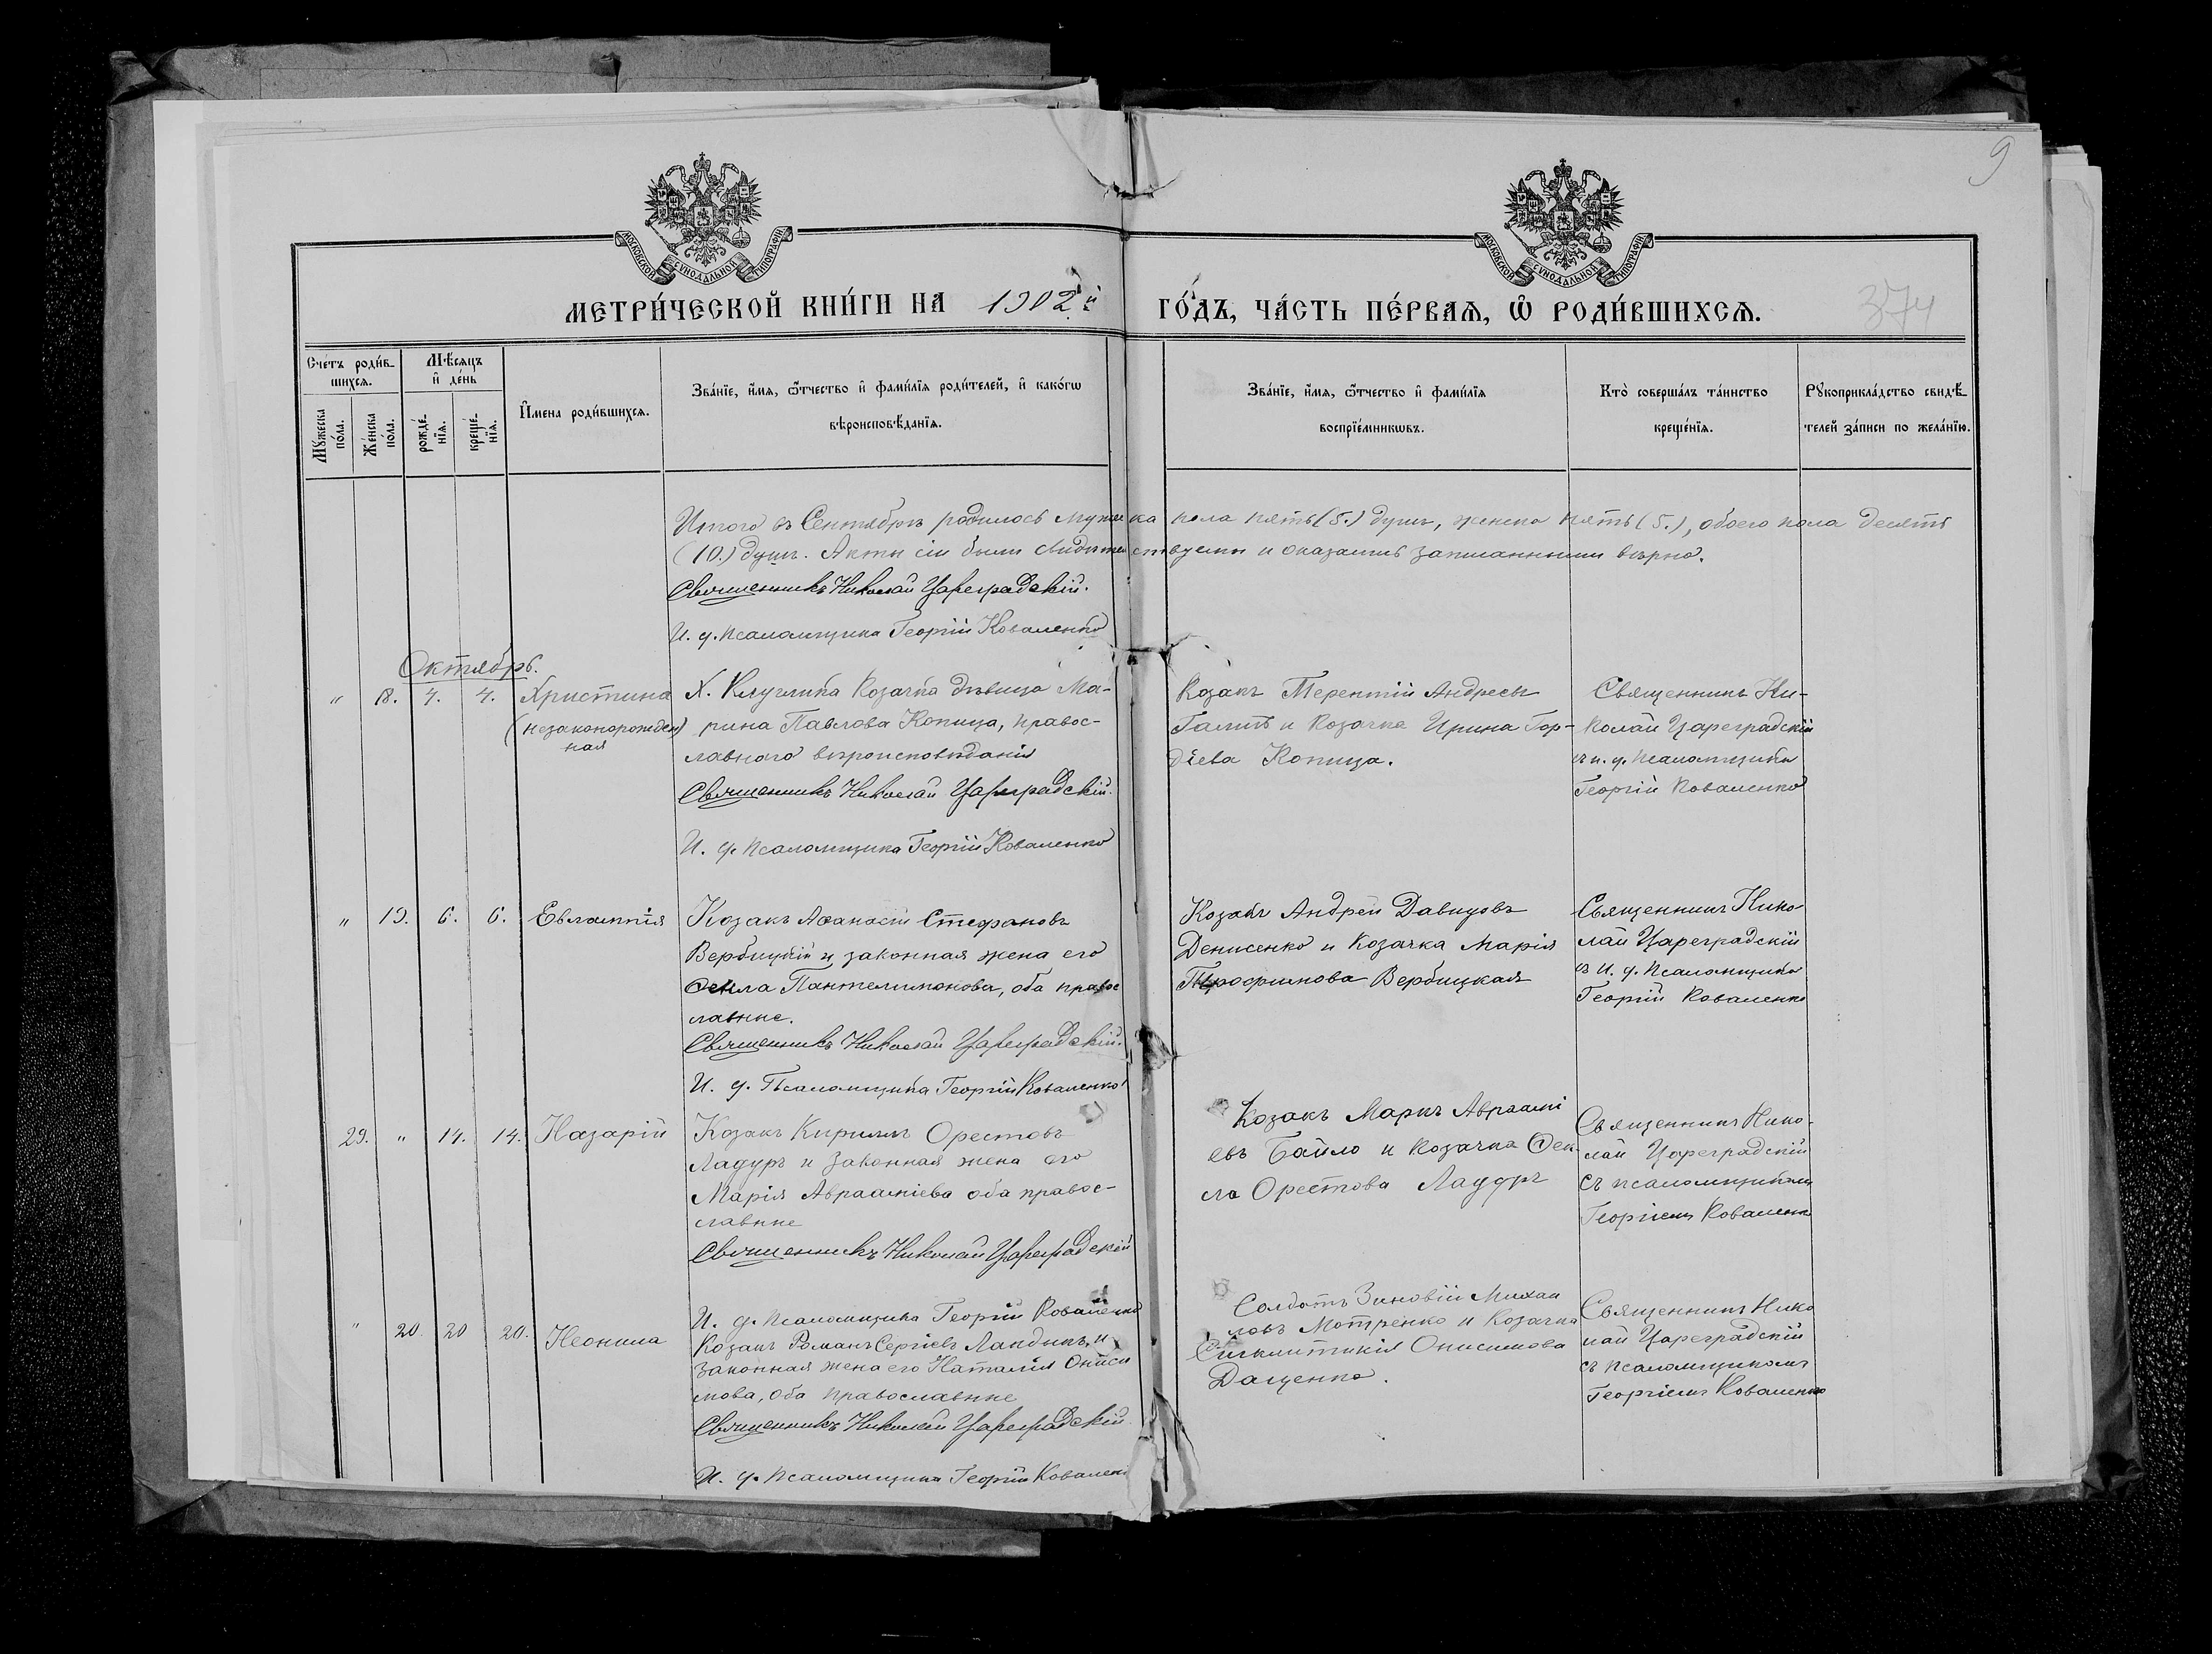 9
МОСКОВСКОЙ СУНОДАЛЬНОЙ ТИПОГРАФІИ
МОСКОВСКОЙ СУНОДАЛЬНОЙ ТИПОГРАФІИ
МЕТРИ́ЧЕСКОЙ КНИ́ГИ НА 1902й ГО́ДЪ, ЧА́СТЬ ПЕ́РВАѦ, Ѽ РОДИ́ВШИХСѦ.
374
Сче́тъ роди́в-
шихсѧ.
Мꙋ́жеска
по́ла.
Же́нска
по́ла.
Мѣ́сѧцъ
и҆ де́нь
рожде́-
нїѧ.
креще́-
нїѧ.
И҆мена роди́вшихсѧ.
Зва́нїе, и҆́мѧ, ѻ҆́тчество и҆ фами́лїѧ роди́телей, и҆ како́гѡ
вѣроисповѣ́данїѧ.
Зва́нїе, и҆́мѧ, ѻ҆́тчество и҆ фами́лїѧ
воспрїе́мникѡвъ.
Кто̀ соверша́лъ та́инство
креще́нїѧ.
Рꙋкоприкла́дство свидѣ́-
телей за́писи по жела́нїю.
Итого въ Сентябрѣ родилось мужеска пола пять (5.) душъ, женска пять (5.), обоего пола десять
(10.) душъ. Акты сіи были свидѣтельствуемы и оказались записанными вѣрно.
Священникъ Николай Цареградскій.
И. д. псаломщика Георгій Коваленко
Октябрь.
" 18. 4. 4. Христина
(незаконорожден)
ная
Х. Козачка дѣвица Ма-
рина Павлова Копица, правос-
лавного вѣроисповѣданія
Священникъ Николай Цареградскій.
И. д. псаломщика Георгій Коваленко
Козакъ Терентій Андреевъ
и козачка Ирина Гор-
діева Копица.
Священникъ Ни-
колай Цареградскій
съ и. д. псаломщика
Георгій Коваленко
" 19. 6. 6. Евлампія
Козакъ Аѳанасій Стефановъ
Вербицкій и законная жена его
Ѳекла Пантелимонова, оба правос
лавные.
Священникъ Николай Цареградскій.
И. д. Псаломщика Георгій Коваленко
Козакъ Андрей Давидовъ
Денисенко и козачка Марія
Трофимова Вербицкая
Священникъ Нико
лай Цареградскій
съ и. д. псаломщика
Георгій Коваленко
29. " 14. 14. Назарій
Козакъ Кириллъ Орестовъ
Ладуръ и законная жена его
Марія Авраамiева оба правос-
лавные
Священникъ Николай Цареградскій
И. д. псаломщика Георгій Коваленко
Козакъ Маркъ Авраамі
евъ Байло и козачка Ѳек-
ла Орестова Ладуръ
Священникъ Нико-
лай Цареградскій
съ псаломщикомъ
Георгіемъ Коваленко
" 20. 20 20. Неонила
Козакъ Романъ Сергіевъ Ландыкъ и
законная жена его Наталія Ониси
мова, оба православные
Священникъ Николай Цареградскій
И. д. псаломщика Георгій Коваленко
Солдатъ Зиновій Михаи
ловъ Мотренко и козачка
Сигклитикія Онисимова
Даценко.
Священникъ Нико
лай Цареградскій
съ псаломщикомъ
Георгіемъ Коваленко